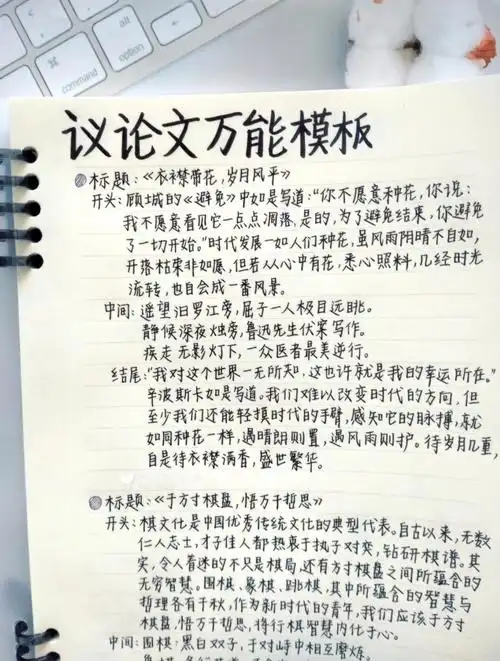 alt
⌘
command
option
议论文万能模板
标题:《衣襟带花,岁月风平》
开头:顾城的《避免》中如是写道:"你不愿意种花,你说:
我不愿意看见它一点点凋落,是的,为了避免结束,你避免
了一切开始。"时代发展一如人们种花,虽风雨阴晴不自如,
开落枯荣非如愿,但若从心中有花,悉心照料,几经时光
流转,也自会成一番风景。
中间:遥望汨罗江旁,屈子一人极目远眺。
静候深夜烛旁,鲁迅先生伏案写作。
疾走无影灯下,一众医者最美逆行。
结尾:"我对这个世界一无所知,这也许就是我的幸运所在。"
辛波斯卡如是写道。我们难以改变时代的方向,但
至少我们还能轻摸时代的手臂,感知它的脉搏,就
如同种花一样,遇晴朗则置,遇风雨则护。待岁月几重,
自是待衣襟满香,盛世繁华。
标题:《于方寸棋盘,悟万千哲思》
开头:棋文化是中国优秀传统文化的典型代表。自古以来,无数
仁人志士,才子佳人都热衷于执子对弈,钻研棋谱。其
实,令人着迷的不只是棋局,还有方寸棋盘之间所蕴含的
无穷智慧。围棋、象棋、跳棋,其中所蕴含的智慧与
哲理各有千秋,作为新时代的青年,我们应该于方寸
棋盘,悟万千哲思,将行棋智慧内化于心。
中间:围棋·黑白双子,于对峙中相互磨炼。